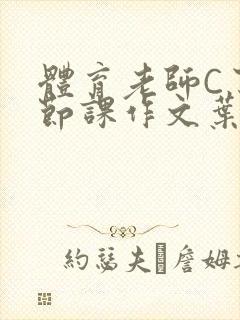 體育老師C
節課作文葉
約瑟夫 詹姆